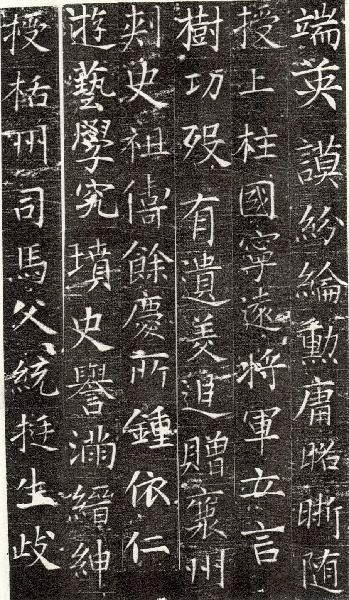 端英謨紛綸勳庸昭晣随
授上柱國寧遠将軍立言
樹功歿有遺美追贈襄州
刾史祖餘慶所鍾依仁
遊藝學究墳史譽滿縉紳
授栝州司馬父統挺生歧